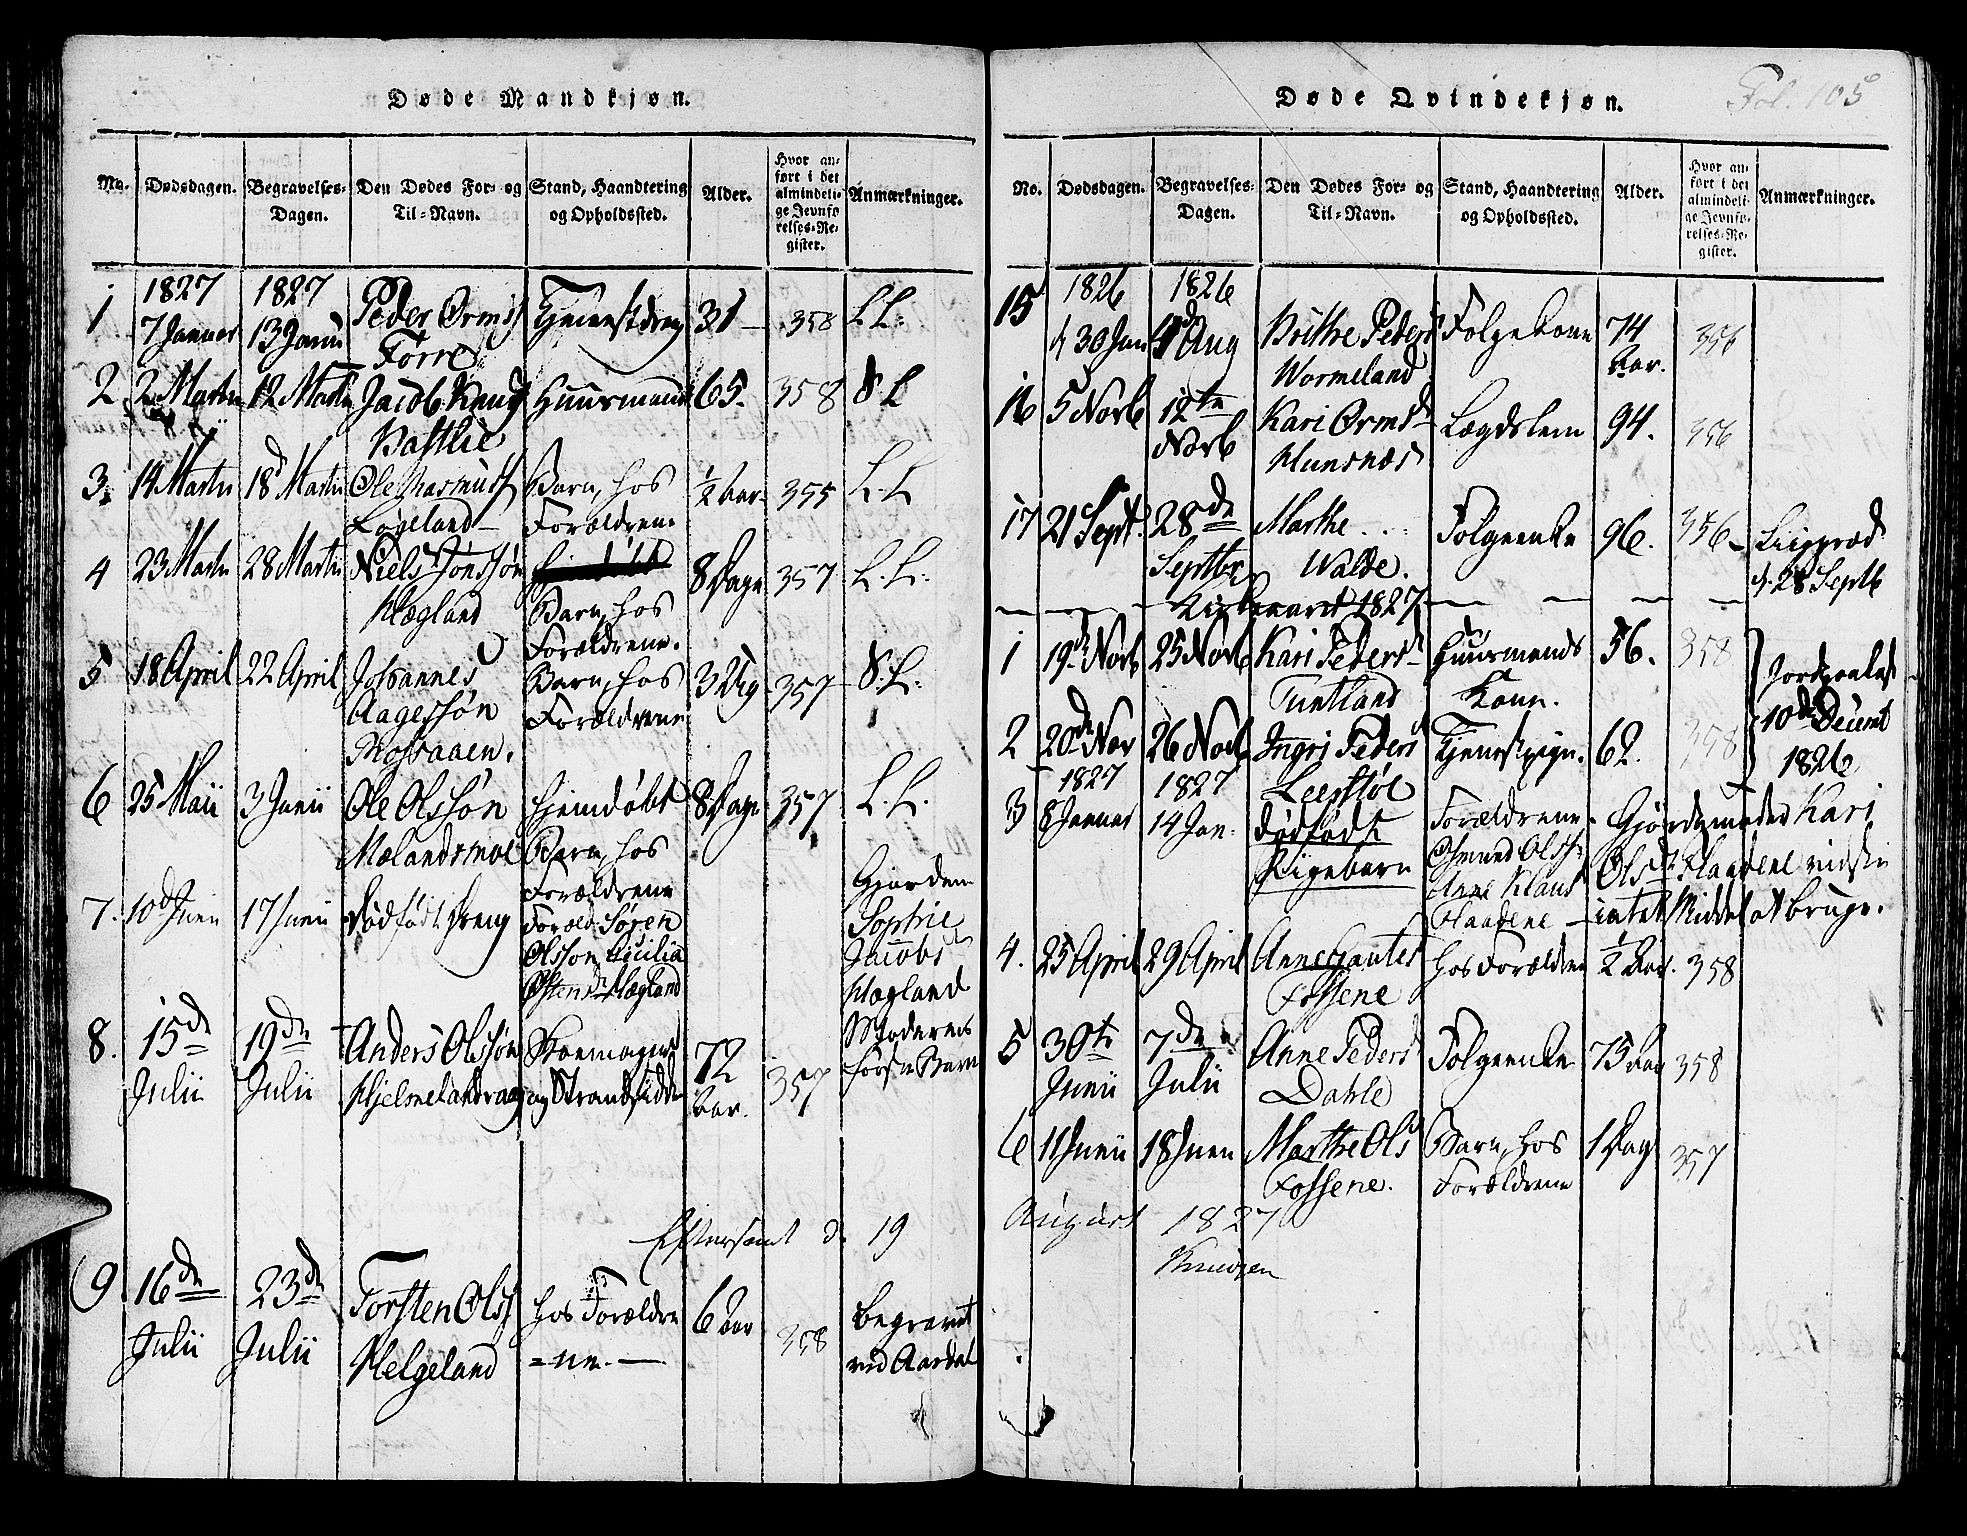 Døde Mandkjøn.
No.
Dødsdagen.
Begravelses-
Dagen.
Den Dødes For- og
Til-Navn.
Stand, Haandtering
og Opholdssted.
Alder.
Hvor an-
ført i det
almindeli-
ge Jevnfø
relses-Re-
gister.
Anmærkninger.
1
1827
7 Januar
1827
13 Janu
Peder Ormss
Førre
31
358
L L.
2
2 Martii
12 Martii
Jacob Knuds
Huusmand
65.
358
S L
3.
14 Martii
18d Martii
Ole Rasmuss
Løgeland
Barn, hos
Forældrene
½ Aar
355
L. L
4
23 Martii
28 Martii
Niels Jonssøn
Hægland
Barn, hos
Forældrene.
8 Dage
357
L. L.
5
18 April
22 April
Johannes
Aagessøn
Mossaaen.
Barn, hos
Forældrene
3 Dag
357
S. L.
6
25 Maii
3 Junii
Ole Olssøn
Mælandsmoe
Hjemdøbt
Barn, hos
Forældrene
8 Dage
357
L. L.
7.
10d Junii
17 Junii
Dødfødt Dreng
Foræld Søren
Olsson, Cicilia
Ostensd Hægland
Gjordem
Sophie
Jacobsd
Hægland
Moderens
første Barn
8.
15de
Julii
19de
Julii
Anders Olssøn
Hjelmelandsvaag
Skoemager
og Strandsidder
72
Aar.
357
Eftersamt d. 19
9
16de
Julii
23de
Julii
Torsten Olss
Helgeland
hos Forældre
=ne.
6 Aar
358
begravet
ved Aardal
Døde Qvindekjøn.
Fol. 105
No.
Dødsdagen.
Begravelses-
Dagen.
Den Dødes For- og
Til-Navn.
Stand, Haandtering
og Opholdssted.
Alder.
Hvor an-
ført i det
almindeli-
ge Jevnfø-
relses-Re-
gister.
Anmærkninger.
15
1826
d 30 Jun
1826
Aug
Brithe Pedersd
Wormeland
Folgekone
74
Aar.
356
16
5 Novb
12te
Novb
Kari Ormsd
Hunsnæs
Lægdslem
94.
356
17
21 Sept.
28de
Septbr
Marthe
Walde.
Folgeenke
96.
356
Liigpræd
d. 28 Septb
Kirkeaaret 1827
1
19d Novb
25 Novb
Kari Pedersd
Tuntland
Huusmands
Kone.
56.
358
Jordpaakast
10de Decmb
1826
2
20de Nov
26 Novb
Ingri Pedersd
Leepstøl
Tjenestpige.
62.
358
3
1827
8 Januar
1827
14 Jan.
Dødfødt
Pigebarn
Forældrene
Osmund Olss
Anne Klausd
Haadene
Gjordemoder Kari
Olsdt Haadene vidste
intet Middel at bruge.
4.
25 April
29 April
Anne Gautesd
Fossene
hos Forældren
½ Aar.
358
5
30te
Junii
7de
Julii
Anne Pedersd
Dahle
Folgeenke
75 Aar
358
6
11 Junii
18 Junii
Marthe Olsd
Fossene.
Barn, hos
Forældrene
1 Dag
357
August 1827
Knudsen